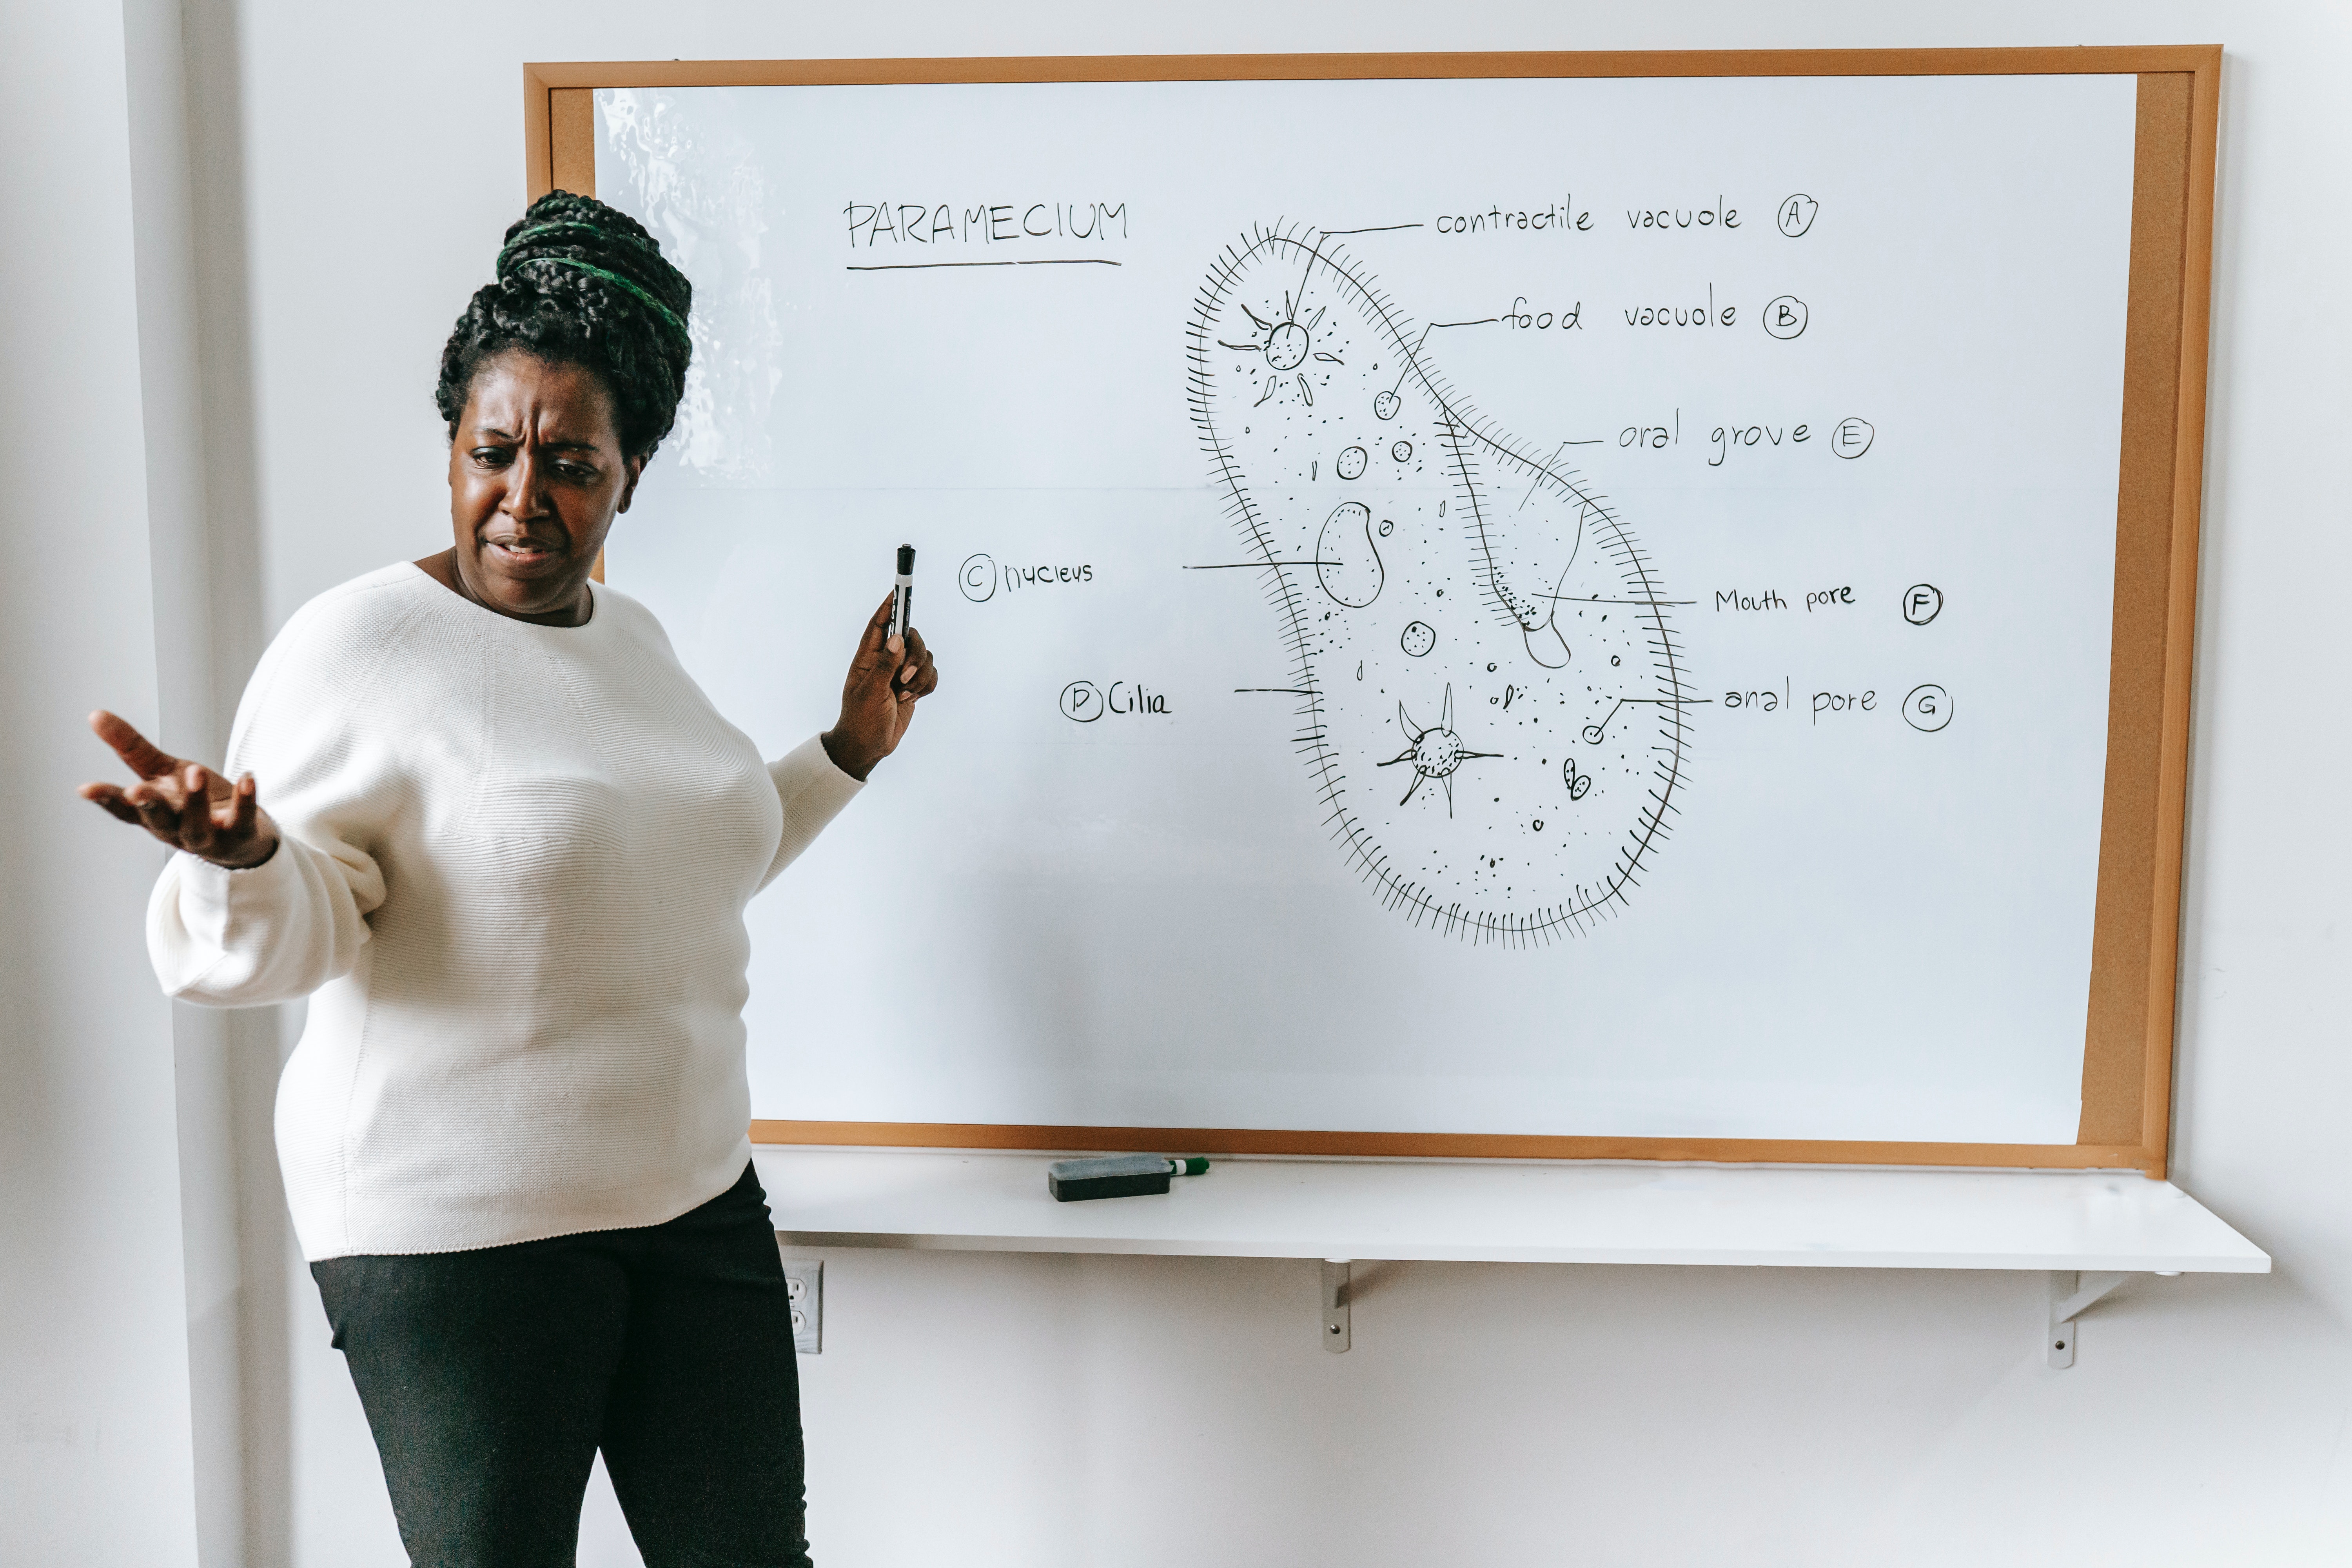 PARAMECIUM
contractile vacuole A
food vacuole B
oral grove E
C nucleus
Mouth pore F
D Cilia
anal pore G